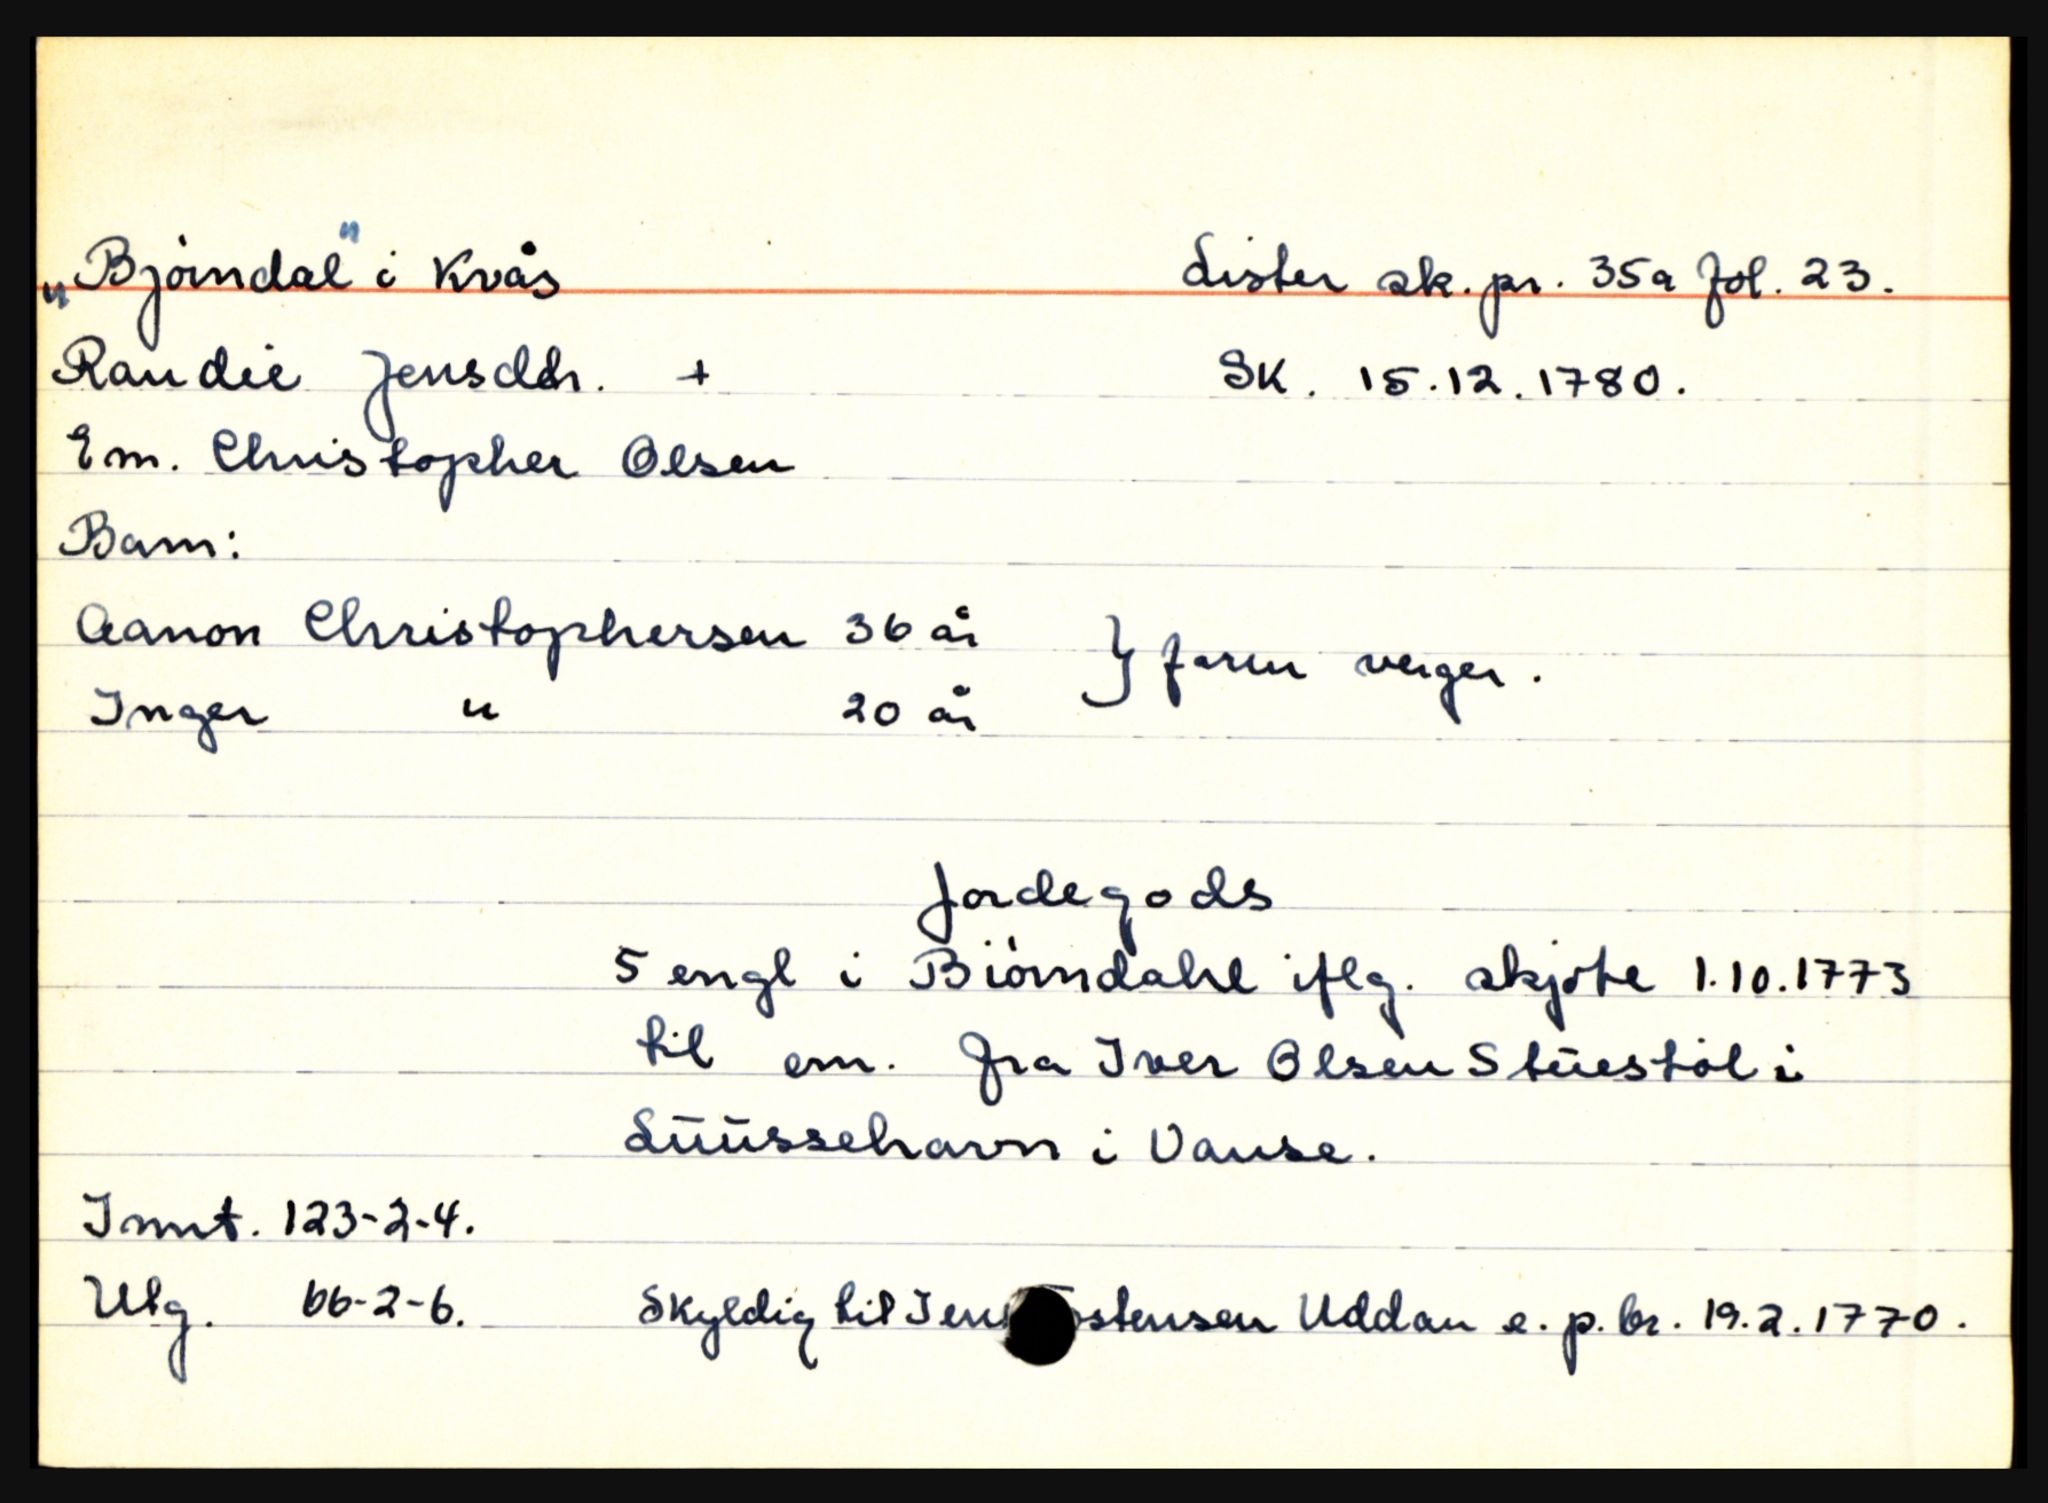 „Bjørndal" i Kvås Lister sk. pr. 35a fol. 23.
Randie Jensdtr. + SK. 15.12.1780.
Em. Christopher Olsen
Barn:
Aanon Christophersen 36 år } faren verger.
Inger " 20 år
Jordegods
5 engl i Biørndahl iflg. skjøte 1.10.1773
til em. fra Iver Olsen Stuestøl i
Luussehavn i Vanse.
Innt. 123-2-4.
Utg. 66-2-6. Skyldig til Jens Tostensen Uddan e. p. br. 19.2.1770.